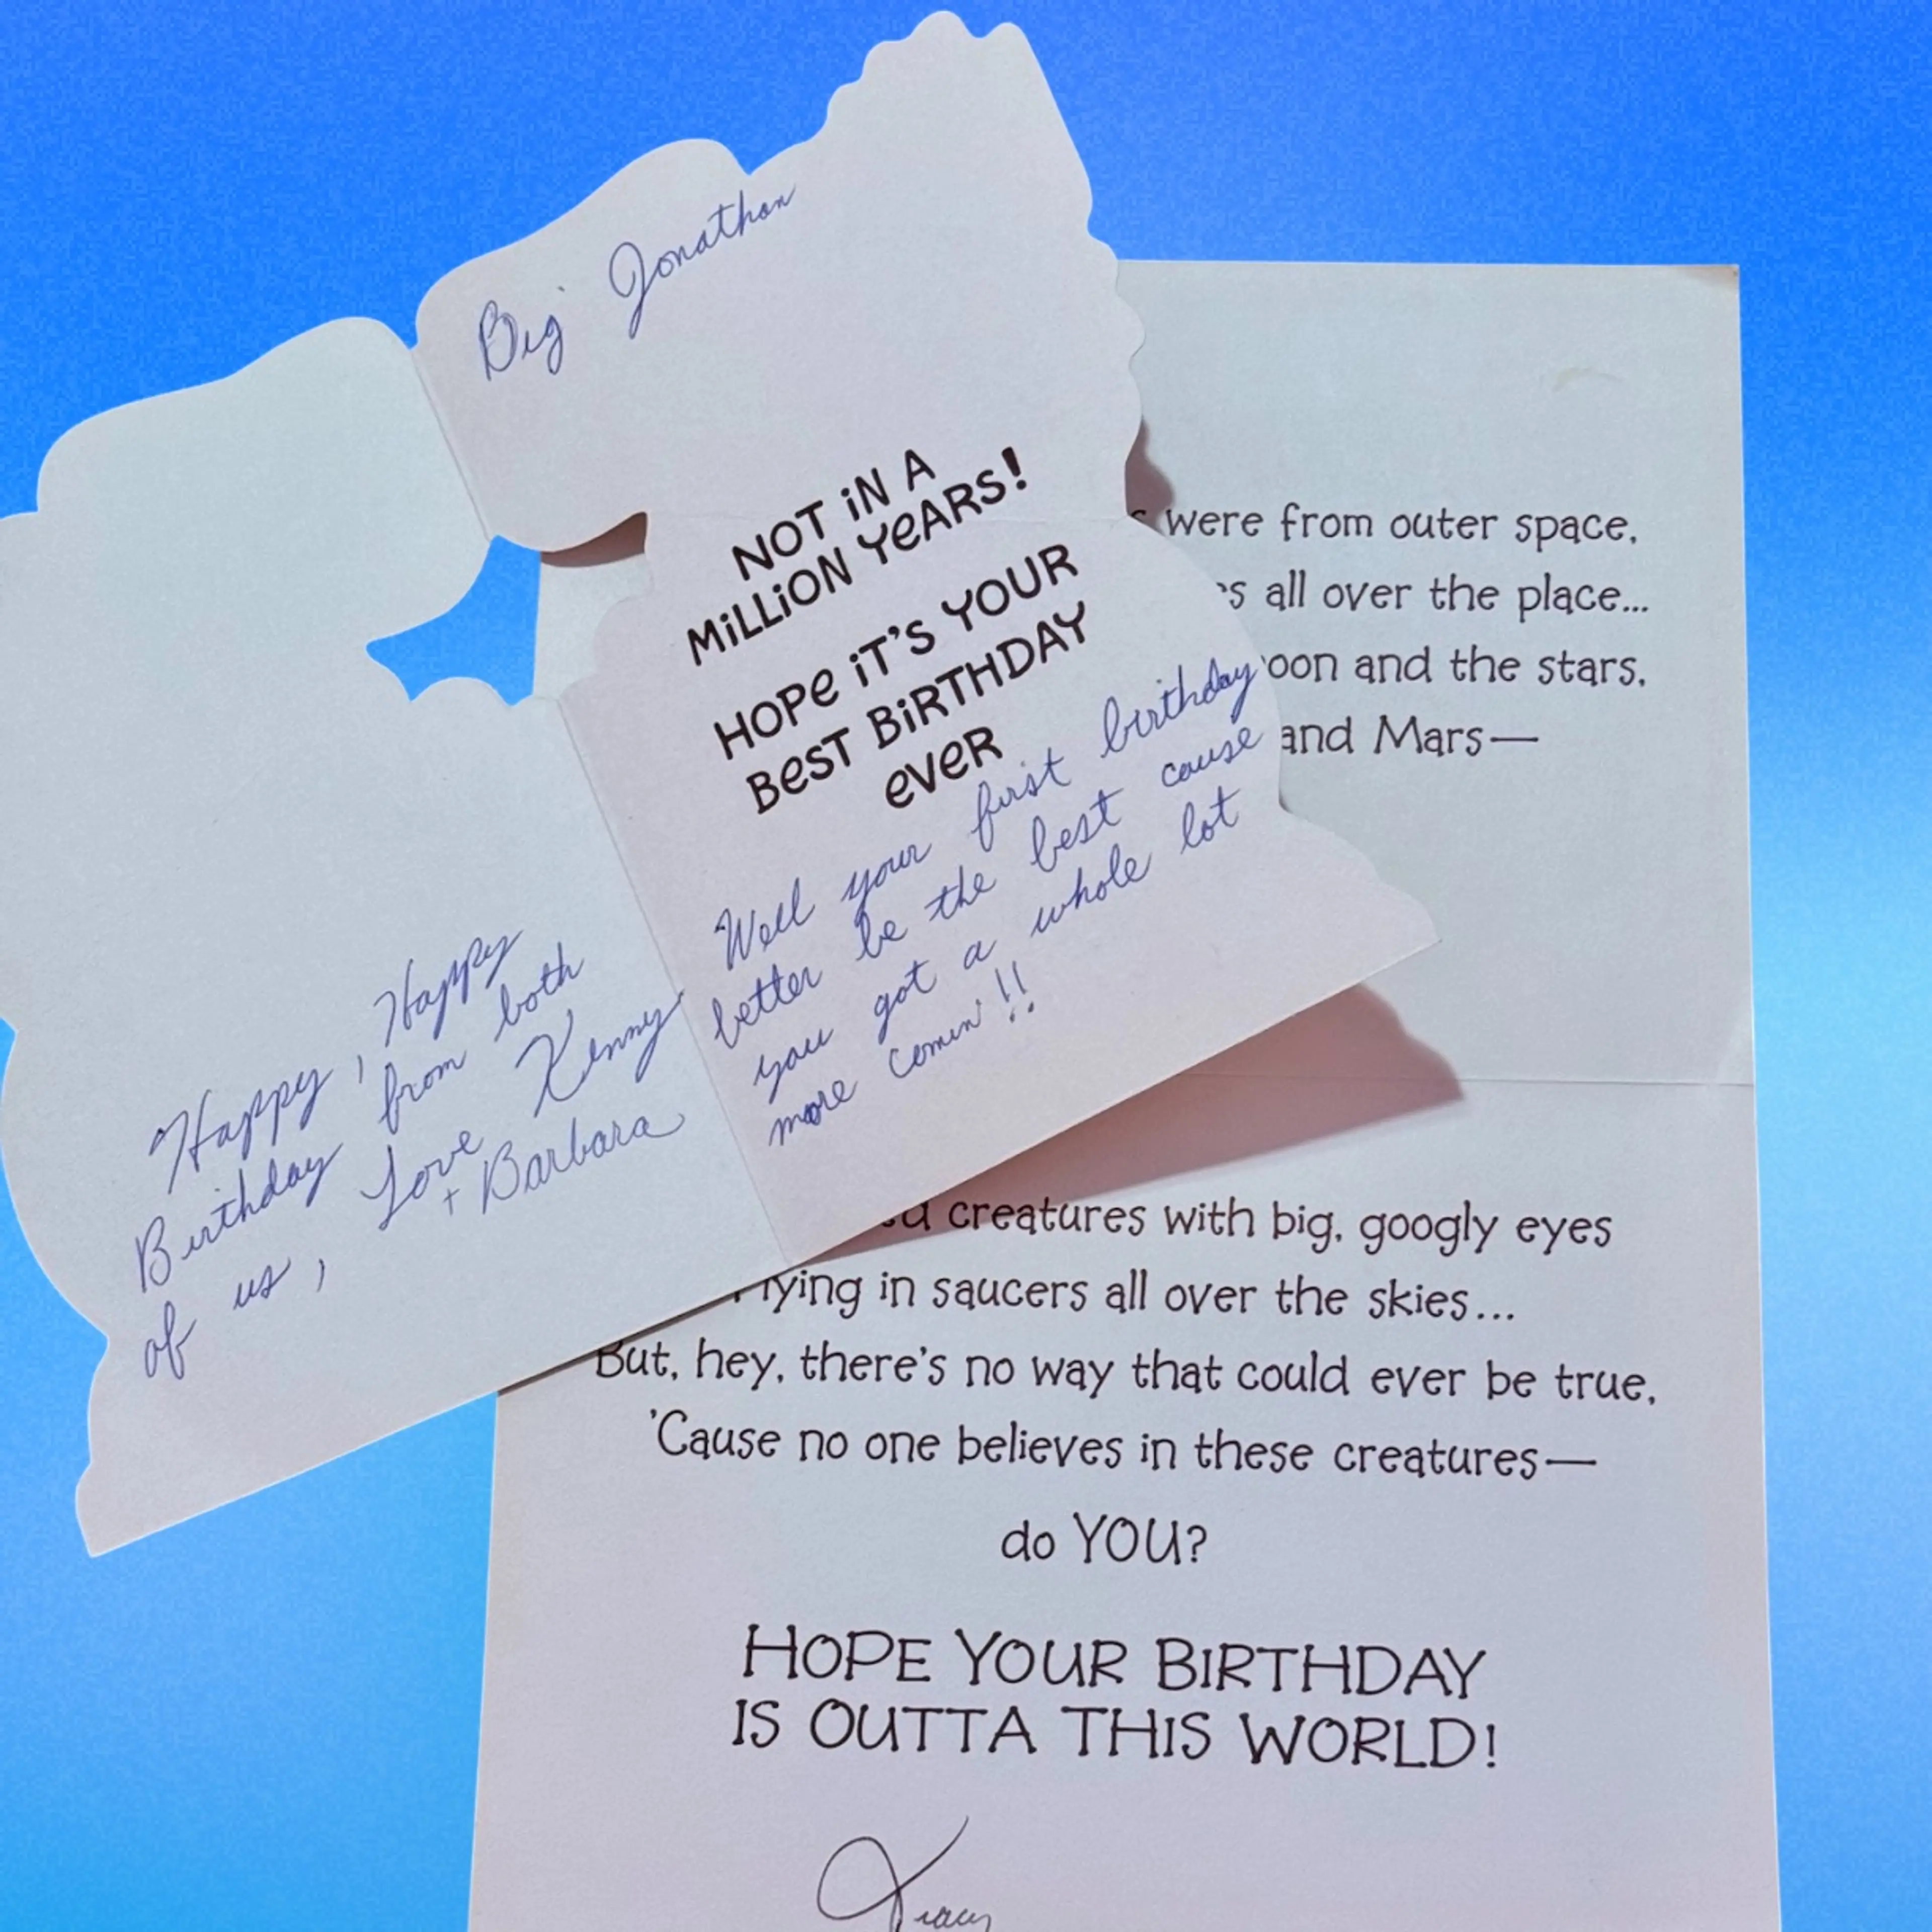 Big Jonathan
NOT iN A
MiLLiON YeARS!
HOPe iT'S YOUR
BeST BiRTHDAY
eVeR
Well your first birthday
better be the best cause
you got a whole lot
more comin'!!
Happy, Happy
Birthday from both
of us, Love Kenny
+ Barbara
were from outer space,
all over the place...
and the stars,
and Mars—
creatures with big, googly eyes
in saucers all over the skies...
But, hey, there's no way that could ever be true,
'Cause no one believes in these creatures—
do YOU?
HOPE YOUR BIRTHDAY
IS OUTTA THIS WORLD!
Tracy